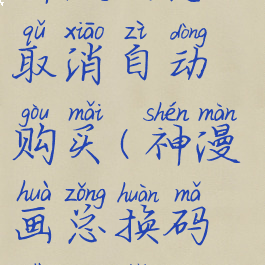 qǔ xiāo zì dòng
取消自动
gòu mǎi shén màn
购买(神漫
huà zǒng huàn mǎ
画总换码